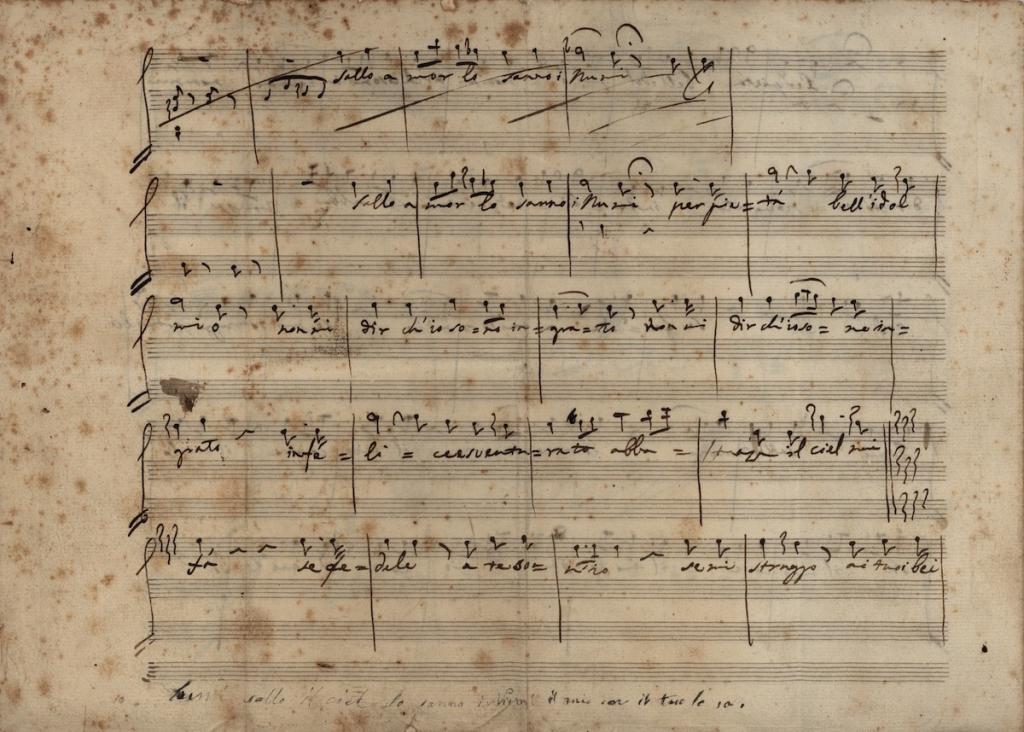 sallo a mor lo sanno i Numi
sallo a mor lo sanno i Numi per pie= tà bell'idol
mio non mi dir ch'io so= no in= gra= to non mi dir ch'io so= no in=
grato infe = li = ce abba = il ciel mi
fà se fe= dele a te so= se mi struggo ai tuoi bei
sallo il ciel lo sanno i Numi il mio cor il tuo lo sa.